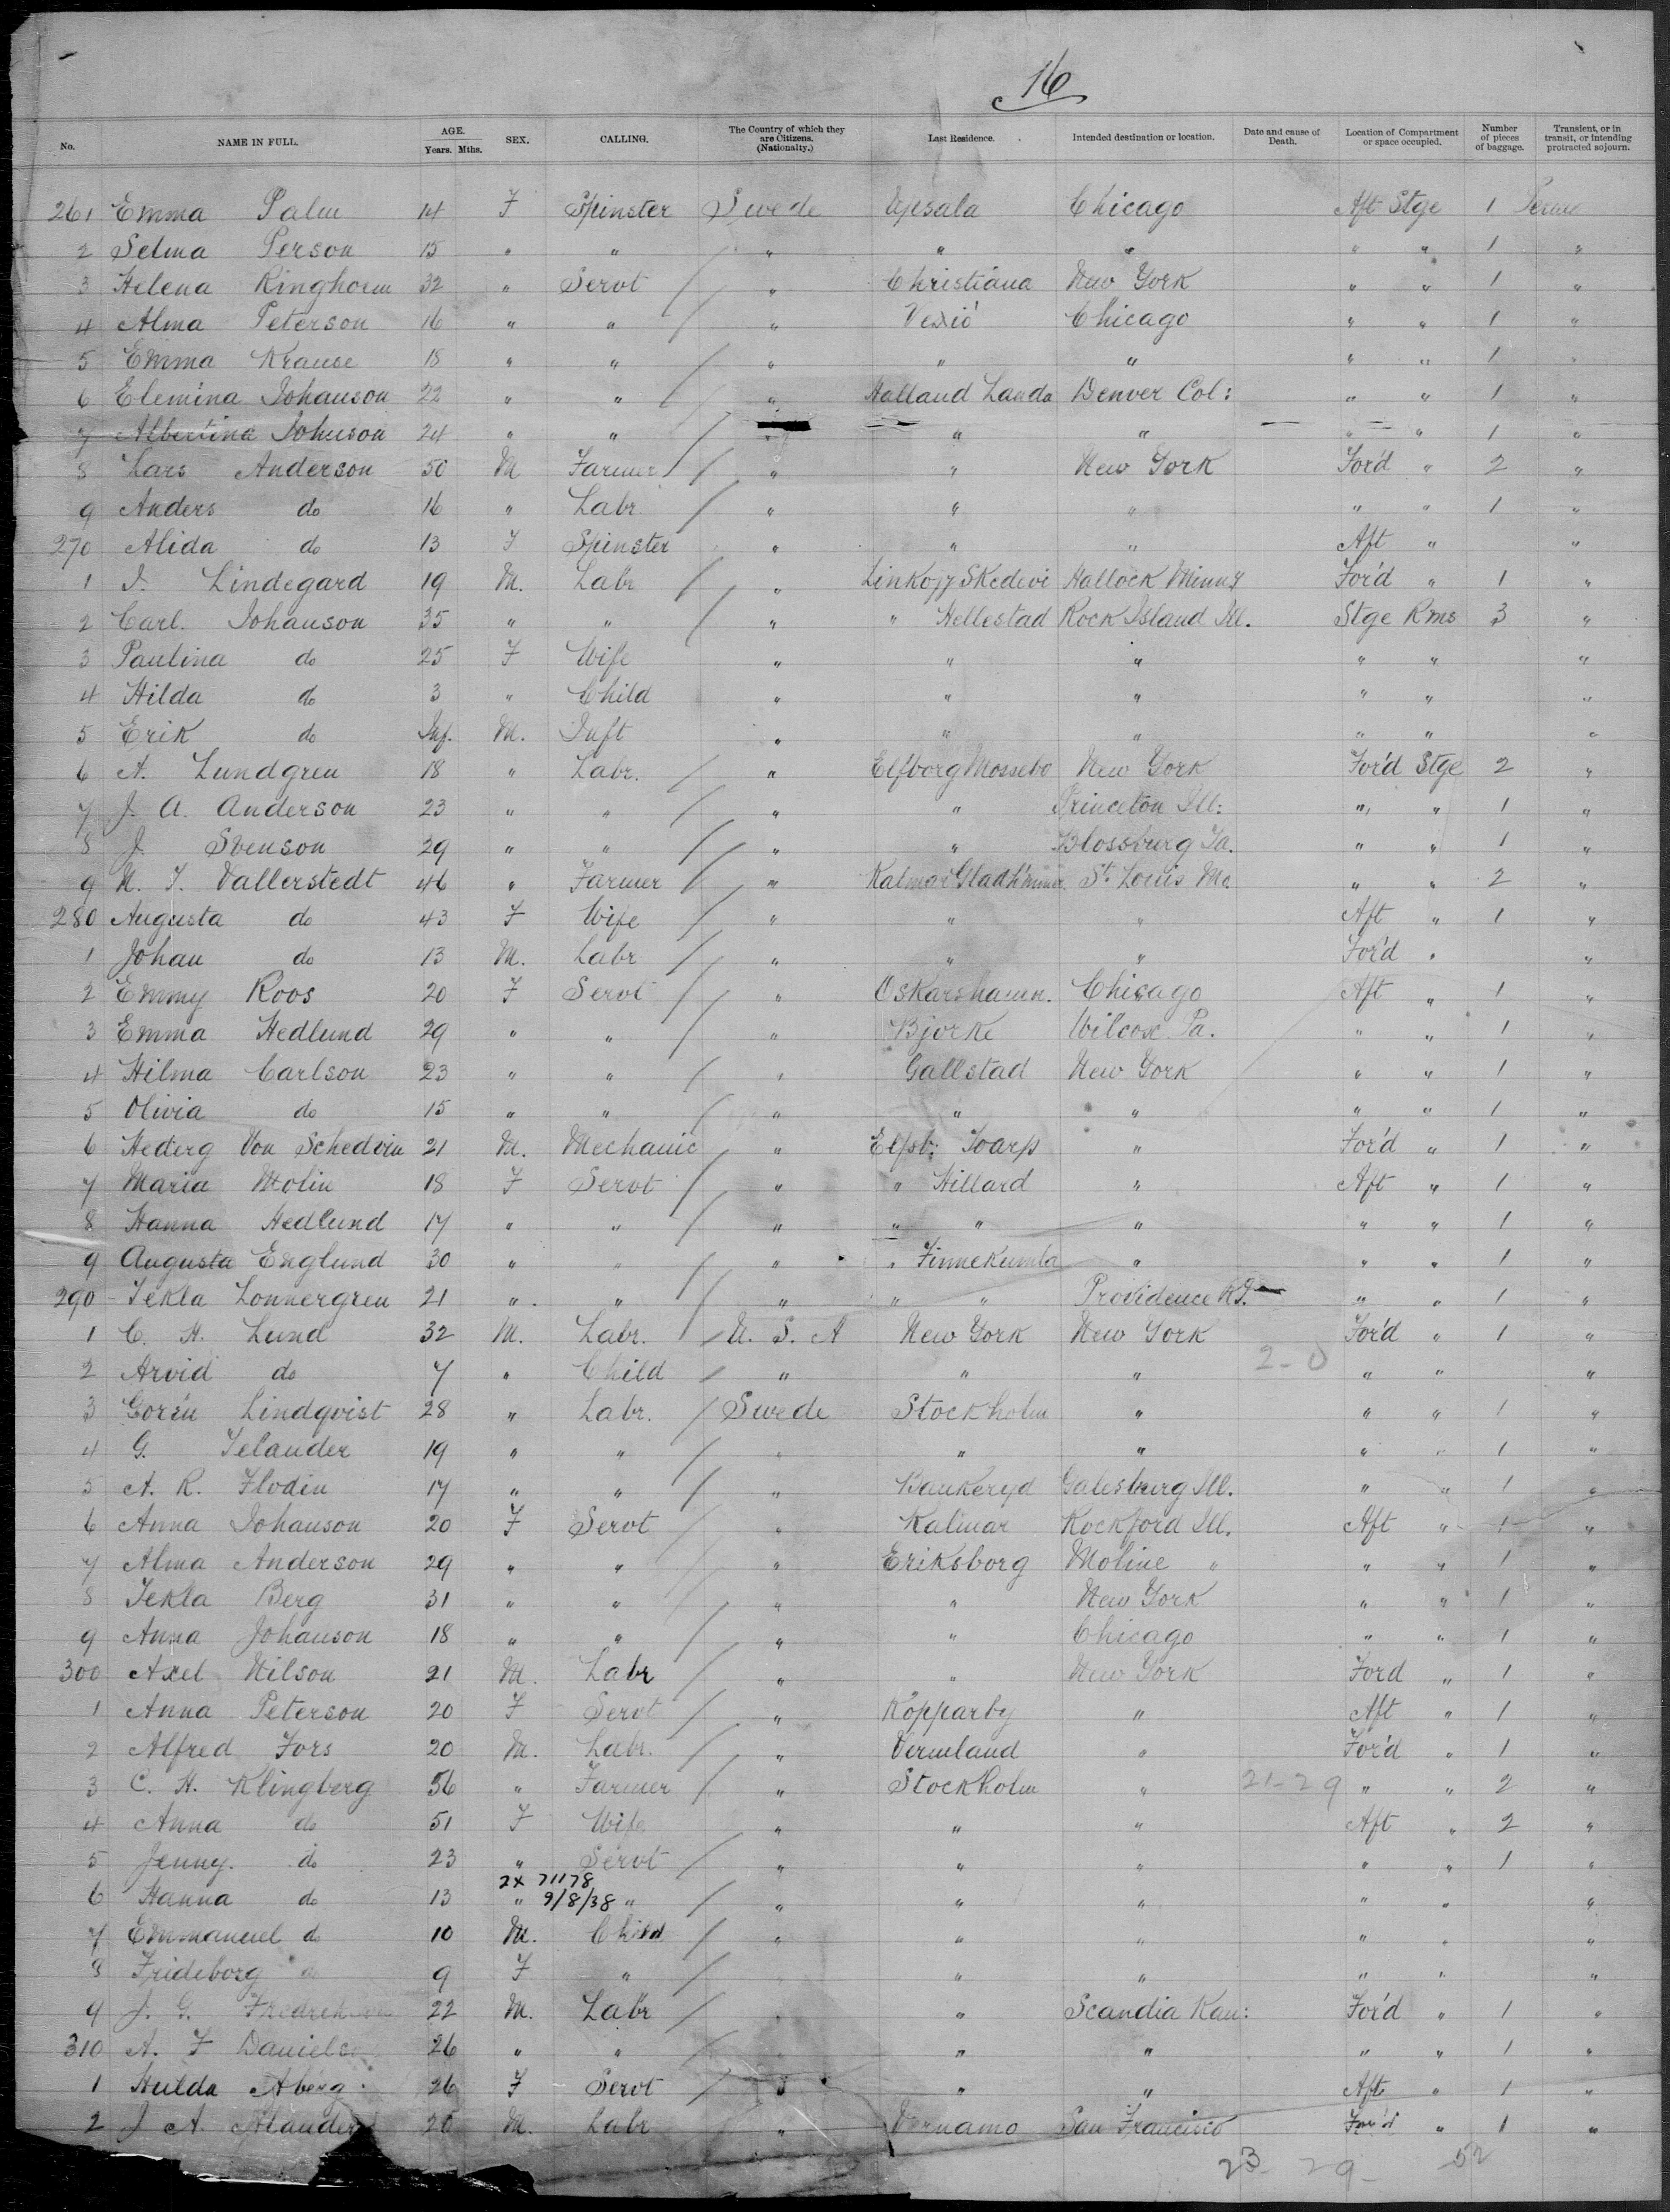 16
No. NAME IN FULL. AGE. Years. Mths. SEX. CALLING. The Country of which they are Citizens. (Nationalty.) Last Residence. Intended destination or location. Date and cause of Death. Location of Compartment or space occupied. Number of pieces of baggage. Transient, or in transit, or intending protracted sojourn.
261 Emma Palm 14 F Spinster Swede Upsala Chicago Aft Stge 1
2 Selma Person 15 " " " " " " " 1 "
3 Helena Ringhorm 32 " Servt / " Christiana New York " " 1 "
4 Alma Peterson 16 " " / " Vexiö Chicago " " 1 "
5 Emma Krause 18 " " / " " " " " 1 "
6 Elemina Johanson 22 " " / " Halland Landa Denver Col: " " 1 "
7 Albertina Johnson 24 " " " " " — " " 1 "
8 Lars Anderson 50 M Farmer / " " New York For'd " 2 "
9 Anders do 16 " Labr / " " " " " 1 "
270 Alida do 13 F Spinster " " " Aft " "
1 J. Lindegard 19 M. Labr / " Linkopg Skedevi Hallock Minn For'd " 1 "
2 Carl. Johanson 35 " " / " " Hellestad Rock Island Ill. Stge Rms 3 "
3 Paulina do 25 F Wife " " " " " "
4 Hilda do 3 " Child " " " " " "
5 Erik do Inf. M. Inft " " " " " "
6 A. Lundgren 18 " Labr. " Elfborg Mossebo New York For'd Stge 2 "
7 J. A. Anderson 23 " " / " " Princeton Ill: " " 1 "
8 J Svenson 29 " " / " " Blossburg Pa. " " 1 "
9 N. J. Vallerstedt 46 " Farmer / " Kalmar St. Louis Mo " " 2 "
280 Augusta do 43 F Wife / " " " Aft " 1 "
1 Johan do 13 M. Labr / " " " For'd " "
2 Emmy Roos 20 F Servt / " Oskarshamn. Chicago Aft " 1 "
3 Emma Hedlund 29 " " / " Bjorke Wilcox Pa. " " 1 "
4 Hilma Carlson 23 " " / " Gallstad New York " " 1 "
5 Olivia do 15 " " / " " " " " 1 "
6 Hederg Von Schedvin 21 M. Mechanic " Elfsb: Toarp " For'd " 1 "
7 Maria Molin 18 F Servt / " " Hillard " Aft " 1 "
8 Hanna Hedlund 17 " " / " " " " " " 1 "
9 Augusta Englund 30 " " / " " Finnekumla " " " 1 "
290 Tekla Lonnergren 21 " " / " " " Providence R.I. " " 1 "
1 C. H. Lund 32 M. Labr. / U. S. A New York New York For'd " 1 "
2 Arvid do 7 " Child / " " " 2-0 " " "
3 Goren Lindqvist 28 " Labr. / Swede Stockholm " " " 1 "
4 G. Telander 19 " " / " " " " " 1 "
5 A. R. Flodin 17 " " / " Bankeryd Galesburg Ill. " " 1 "
6 Anna Johanson 20 F Servt / " Kalmar Rockford Ill. Aft " 1 "
7 Alma Anderson 29 " " / " Eriksborg Moline " " " 1 "
8 Tekla Berg 31 " " / " " New York " " 1 "
9 Anna Johanson 18 " " / " " Chicago " " 1 "
300 Axel Nilson 21 M. Labr / " " New York Ford " 1 "
1 Anna Peterson 20 F Servt / " Kopparby " Aft " 1 "
2 Alfred Fors 20 M. Labr. / " Vermland " For'd " 1 "
3 C. H. Klingberg 56 " Farmer / " Stockholm " 21-29 " " 2 "
4 Anna do 51 F Wife " " " Aft " 2 "
5 Jenny. do 23 " Servt / " " " " " 1 "
2x 71178
6 Hanna do 13 " 9/8/38 " / " " " " " "
7 Emmanuel do 10 M. Child / " " " " " "
8 Frideborg do 9 F " / " " " " " "
9 J. G. 22 M. Labr / " " Scandia Kan: For'd " 1 "
310 A. F Daniels 26 " " " " " " " 1 "
1 Hulda Aberg 26 F Servt / " " " Aft " 1 "
2 J A. M. Labr " Vernamo San Francisco For'd " 1 "
23- 29- 52